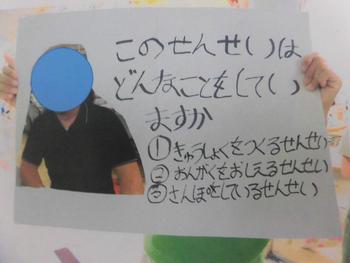 このせんせいは
どんなことをしてい
ますか
①きゅうしょくをつくるせんせい
②おんがくをおしえるせんせい
③さんぽをしているせんせい